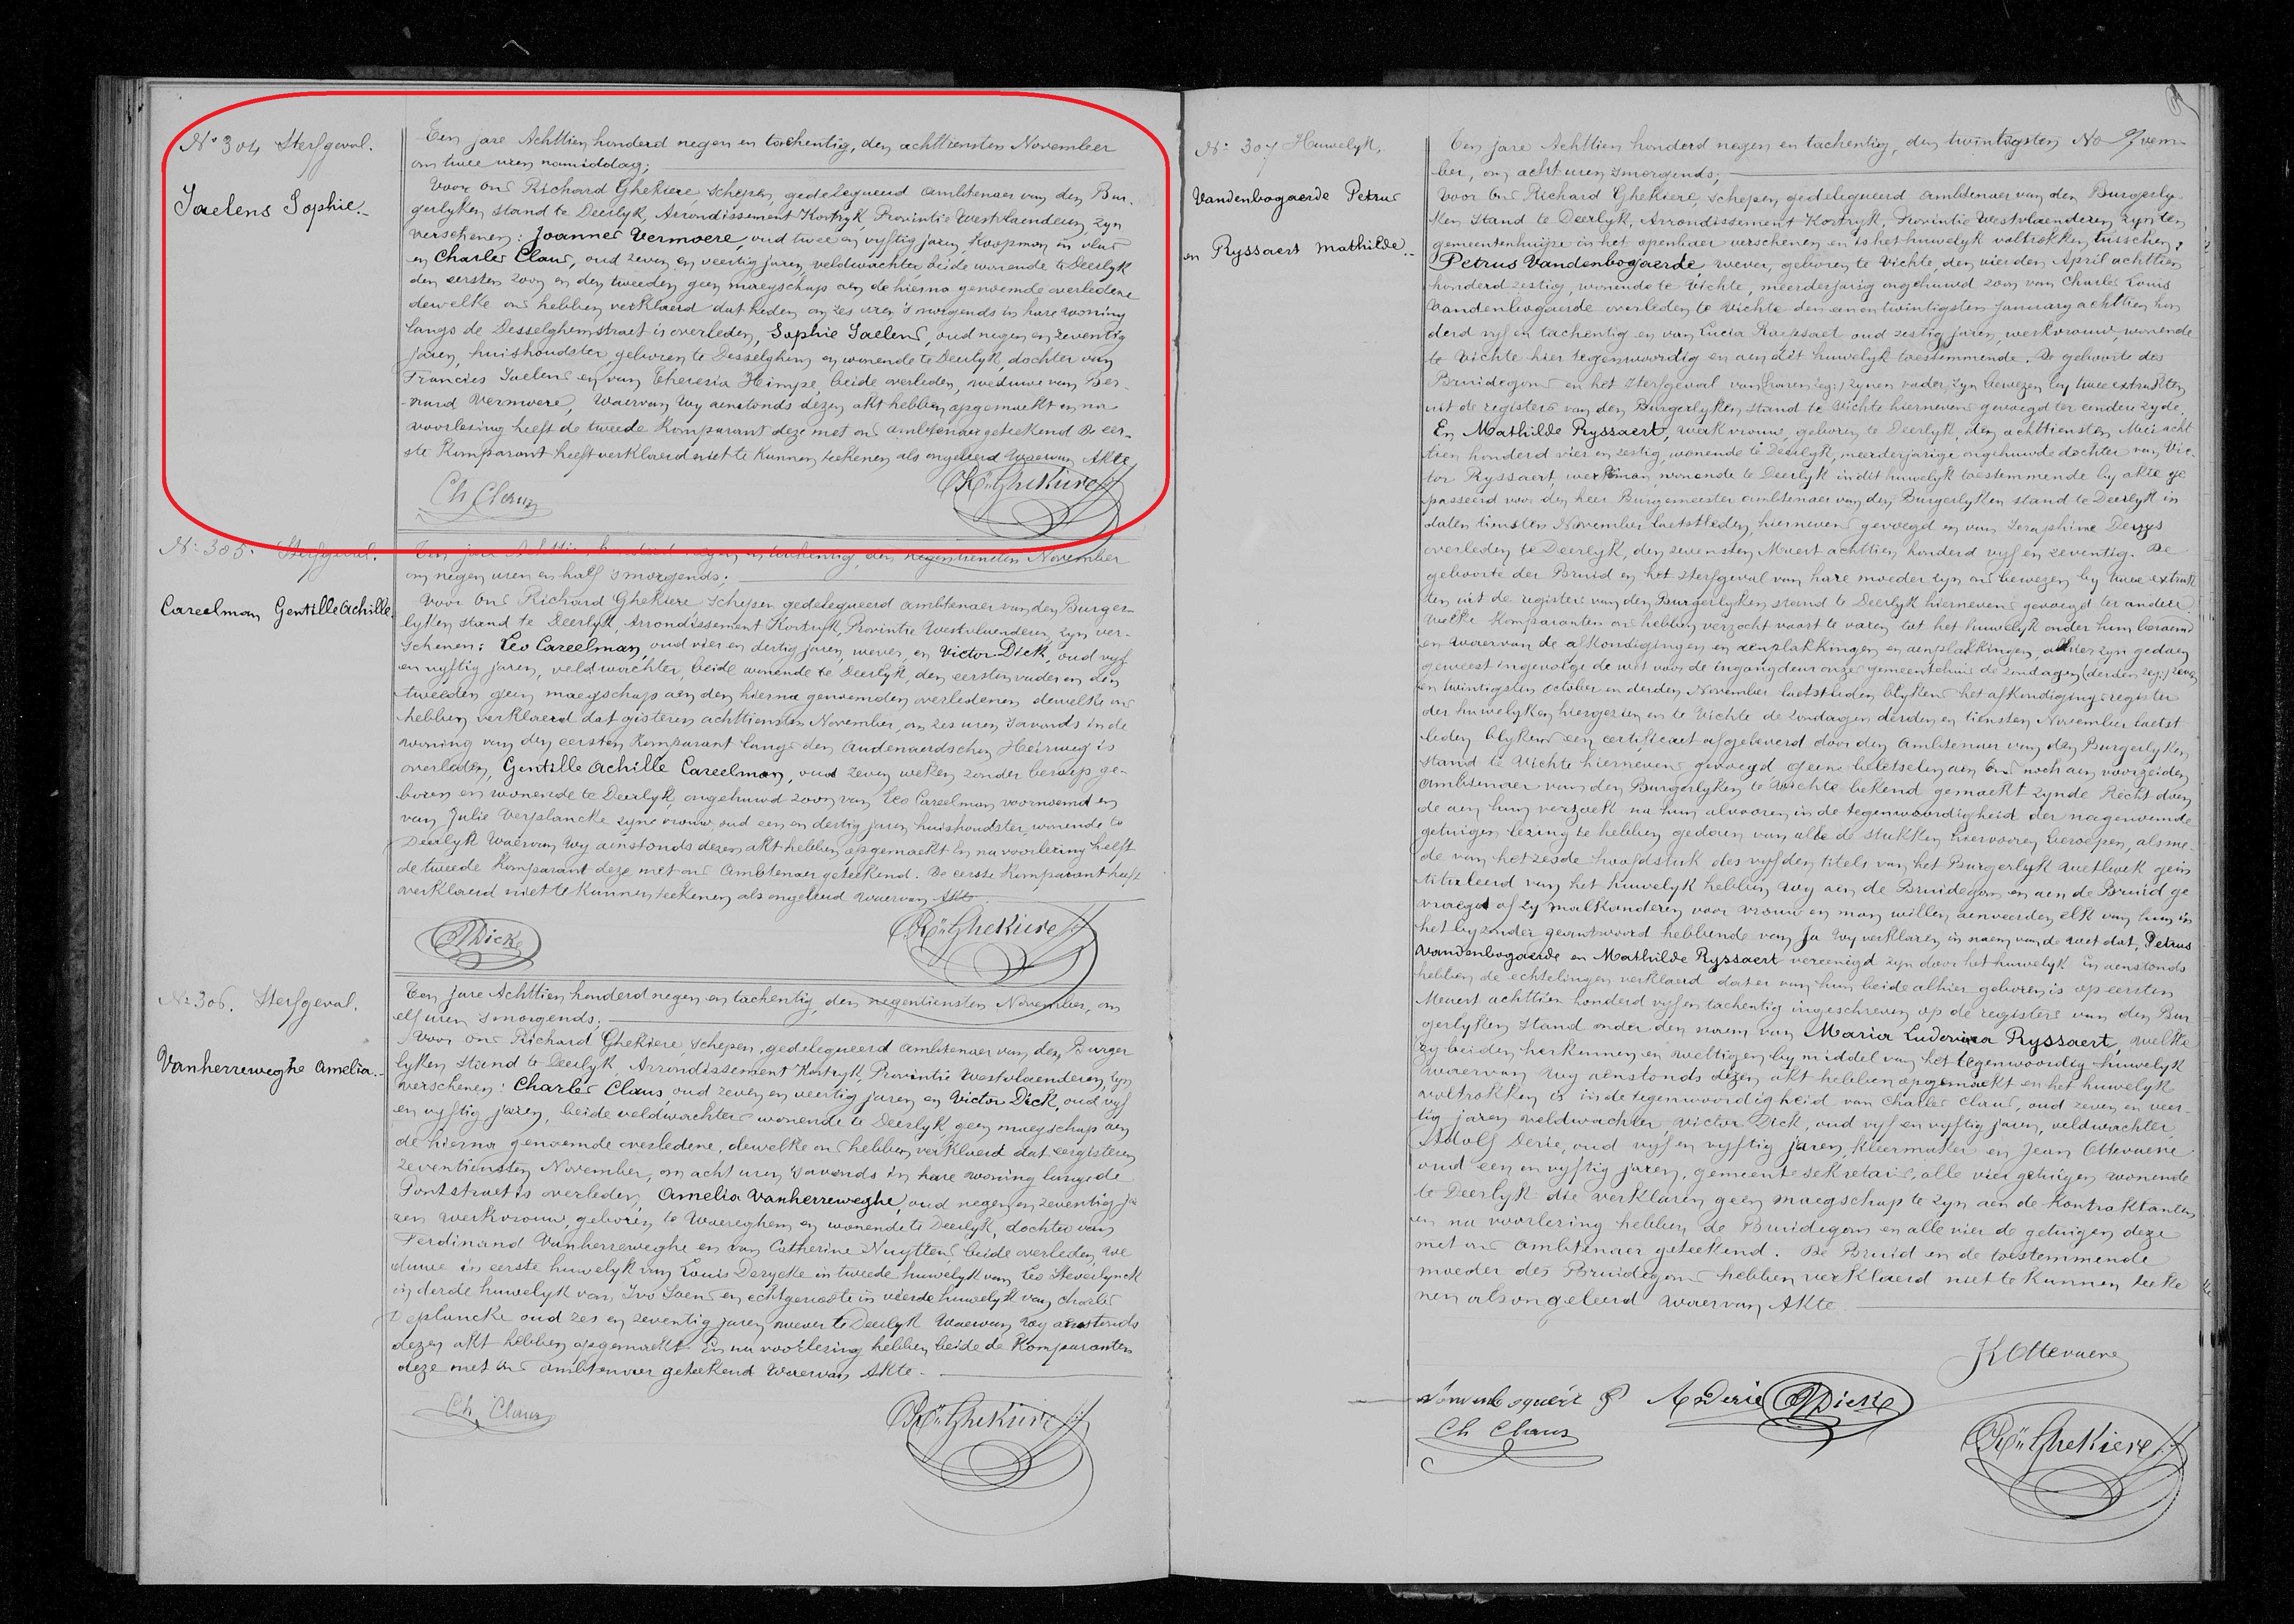 No 304 Sterfgeval.
Saelens Sophie.
Ten jare Achttien honderd negen en tachentig, den achttiensten November
om twee uren namiddag;
Voor ons Richard Ghekiere, schepen, gedelegueerd Ambtenaer van den Bur-
gerlyken stand te Deerlyk, Arrondissement Kortryk, Provintie Westvlaenderen, zyn
verschenen: Joannes Vermoere, oud twee en vyftig jaren, Koopman in vlas
en Charles Claus, oud zeven en veertig jaren, veldwachter, beide wonende te Deerlyk
den eersten zoon en den tweeden geen maegschap aen de hierna genoemde overledene
dewelke ons hebben verklaerd dat heden om zes uren 's morgends in hare woning
langs de Desselghemstraet is overleden, Sophie Saelens, oud negen en zeventig
jaren, huishoudster, geboren te Desselghem en wonende te Deerlyk, dochter van
Francies Saelens en van Theresia Himpe, beide overleden, weduwe van Ber-
nard Vermoere, Waervan Wy aenstonds dezen akt hebben opgemaekt en na
voorlezing heeft de tweede Komparant deze met ons ambtenaer geteekend De eer-
ste Komparant heeft verklaerd niet te kunnen teekenen als ongeleerd Waervan Akte
Ch Claus
Rd Ghekiere
No 305. Sterfgeval.
Careelman Gentille Achille
Ten jare Achttien honderd negen en tachentig, den negentiensten November
om negen uren en half 's morgends;
Voor ons Richard Ghekiere schepen gedelegueerd ambtenaer van den Burger-
lyken stand te Deerlyk, Arrondissement Kortryk, Provintie Westvlaenderen, zyn ver-
schenen: Leo Careelman, oud vier en dertig jaren, wever, en Victor Dick, oud vyf
en vyftig jaren, veldwachter, beide wonende te Deerlyk, den eersten vader en den
tweeden geen maegschap aen den hierna genoemden overledenen dewelke ons
hebben verklaerd dat gisteren achttiensten November, om zes uren 's avonds in de
woning van den eersten Komparant langs den Audenaerdschen Heirweg is
overleden, Gentille Achille Careelman, oud zeven weken, zonder beroep ge-
boren en wonende te Deerlyk, ongehuwd zoon van Leo Careelman voornoemd en
van Julie Verplancke zyne vrouw, oud een en dertig jaren huishoudster, wonende te
Deerlyk Waervan Wy aenstonds dezen akt hebben opgemaekt En na voorlezing heeft
de tweede Komparant deze met ons Ambtenaer geteekend. De eerste Komparant heeft
verklaerd niet te kunnen teekenen als ongeleerd waervan Akte
VDick
Rd Ghekiere
No 306. Sterfgeval.
Vanherreweghe Amelia.
Ten jare Achttien honderd negen en tachentig, den negentiensten November, om
elf uren 's morgends;
Voor ons Richard Ghekiere, schepen, gedelegueerd ambtenaer van den Burger
lyken stand te Deerlyk, Arrondissement Kortryk, Provintie Westvlaenderen, zyn
verschenen: Charles Claus, oud zeven en veertig jaren en Victor Dick, oud vyf
en vyftig jaren, beide veldwachters wonende te Deerlyk, geen maegschap aen
de hierna genoemde overledene, dewelke ons hebben verklaerd dat eergisteren
zeventiensten November, om acht uren 's avonds in hare woning langs de
Pontstraet is overleden, Amelia Vanherreweghe, oud negen en zeventig ja
ren werkvrouw, geboren te Waereghem en wonende te Deerlyk, dochter van
Ferdinand Vanherreweghe en van Catherine Nuytten beide overleden, we
duwe in eerste huwelyk van Louis Derycke in tweede huwelyk van Leo Steverlynck
in derde huwelyk van Ivo Soens en echtgenoote in vierde huwelyk van Charles
Deplancke oud zes en zeventig jaren wever te Deerlyk Waervan Wy aenstonds
dezen akt hebben opgemaekt En na voorlezing hebben beide de Komparanten
deze met ons ambtenaer geteekend Waervan Akte.
Ch Claus
Rd Ghekiere
No 307 Huwelyk.
Vandenbogaerde Petrus
en Ryssaert Mathilde.
Ten jare Achttien honderd negen en tachentig, den twintigsten Novem-
ber, om acht uren 's morgends;
Voor Ons Richard Ghekiere, schepen, gedelegueerd ambtenaer van den Burgerly
ken stand te Deerlyk, Arrondissement Kortryk, Provintie Westvlaenderen, zyn ten
gemeentenhuize in het openbaer verschenen en is het huwelyk voltrokken tusschen:
Petrus Vandenbogaerde, wever, geboren te Vichte, den vierden April achttien
honderd zestig, wonende te Vichte, meerderjarig ongehuwd zoon van Charles Louis
Vandenbogaerde overleden te Vichte den een en twintigsten January achttien hon
derd vyf en tachentig en van Lucia Raepsaet oud zestig jaren, werkvrouw, wonende
te Vichte hier tegenwoordig en aen dit huwelyk toestemmende. De geboorte des
Bruidegoms en het sterfgeval van (haren zeg:) zynen vader, zyn bewezen by twee extrakten
uit de registers van den Burgerlyken stand te Vichte hiernevens gevoegd ter eenere zyde
En Mathilde Ryssaert, werkvrouw, geboren te Deerlyk, den achttiensten Mei acht
tien honderd vier en zestig, wonende te Deerlyk, meerderjarige ongehuwde dochter van Vic-
tor Ryssaert, werkman, wonende te Deerlyk in dit huwelyk toestemmende by akte ge
passeerd voor den heer Burgemeester ambtenaer van den Burgerlyken stand te Deerlyk in
daten tiensten November laetstleden, hiernevens gevoegd en van Seraphine Deruys
overleden te Deerlyk, den zevensten Maert achttien honderd vyf en zeventig. De
geboorte der Bruid en het sterfgeval van hare moeder zyn ons bewezen by twee extrak
ten uit de registers van den Burgerlyken stand te Deerlyk hiernevens gevoegd ter andere
Welke Komparanten ons hebben verzocht voort te varen tot het huwelyk onder hun beraemd
en waervan de afkondigingen en aenplakkingen en aenplakkingen, alhier zyn gedaen
geweest ingevolge de wet voor de ingangdeur onzes gemeentehuis de zondagen (derden zeg:) zeven
en twintigsten October en derden November laetstleden blykens het afkondigingsregister
der huwelyken hier gezien en te Vichte de zondagen derden en tiensten November laetst
leden blykens een certificaet afgeleverd door den Ambtenaer van den Burgerlyken
stand te Vichte hiernevens gevoegd Geene beletselen aen ons noch aen voorzeiden
ambtenaer van den Burgerlyken te Vichte bekend gemaekt zynde Recht doen
de aen hun verzoek na hun alvooren in de tegenwoordigheid der nagenoemde
getuigen lezing te hebben gedaen van alle de stukken hiervooren beroepen, alsme-
de van het zesde hoofdstuk des vyfden titels van het Burgerlyk Wetboek geïn
tituleerd van het huwelyk hebben Wy aen de Bruidegom en aen de Bruid ge
vraegd of zy malkanderen voor vrouw en man willen aenveerden, elk van hun in
het byzonder geantwoord hebbende van Ja Wy verklaren in naem van de wet dat, Petrus
Vandenbogaerde en Mathilde Ryssaert vereenigd zyn door het huwelyk En aenstonds
hebben de echtelingen verklaerd dat er van hun beide alhier geboren is op eersten
Meert achttien honderd vyf en tachentig ingeschreven op de registers van den Bur
gerlyken stand onder den naem van Maria Ludovica Ryssaert, welke
zy beiden herkennen en wettigen by middel van het tegenwoordig huwelyk
waervan Wy aenstonds dezen akt hebben opgemaekt en het huwelyk
voltrokken is in de tegenwoordigheid van Charles Claus, oud zeven en veer-
tig jaren veldwachter Victor Dick, oud vyf en vyftig jaren, veldwachter
Adolf Derie, oud vyf en vyftig jaren, kleermaker en Jean Ottevaere
oud een en vyftig jaren, gemeentesekretaris, alle vier getuigen wonende
te Deerlyk die verklaren geen maegschap te zyn aen de Kontraktanten
en na voorlezing hebben de Bruidegom en alle vier de getuigen deze
met ons ambtenaer geteekend. De Bruid en de toestemmende
moeder des Bruidegoms hebben verklaerd niet te kunnen teeke
nen als ongeleerd waervan Akte
JOttevaere
A Derie
VDick
Ch Claus
Rd Ghekiere